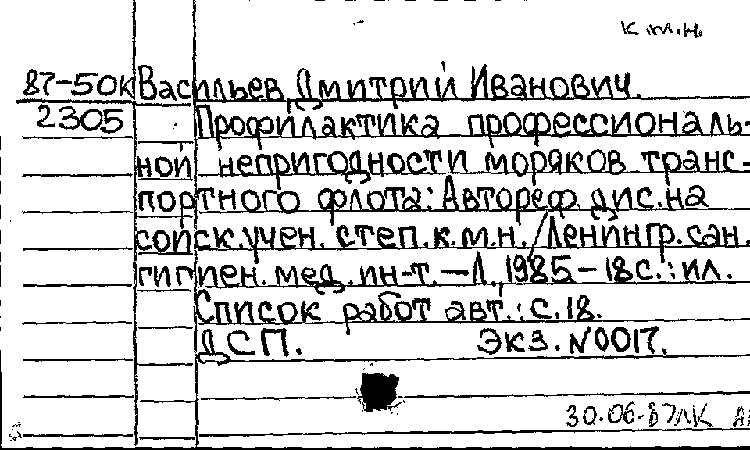 к.м.н.
87-50к Васильев, Дмитрий Иванович.
2305 Профилактика профессиональ-
ной непригодности моряков транс-
портного флота: Автореф. дис. на
сойск. учен. степ. к.м.н. /Ленингр. сан.
гигиен. мед. ин-т. — Л., 1985 – 18 с.: ил.
Список работ авт.: с. 18.
ДСП. Экз. N0017.
30.06.87